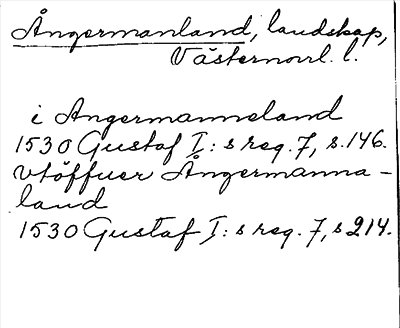 Ångermanland, landskap,
Västernorrl. l.
i Angermanneland
1530 Gustaf I: s reg. 7, s. 146.
vtöffuer Ångermanna-
land
1530 Gustaf I: s reg. 7, s 214.